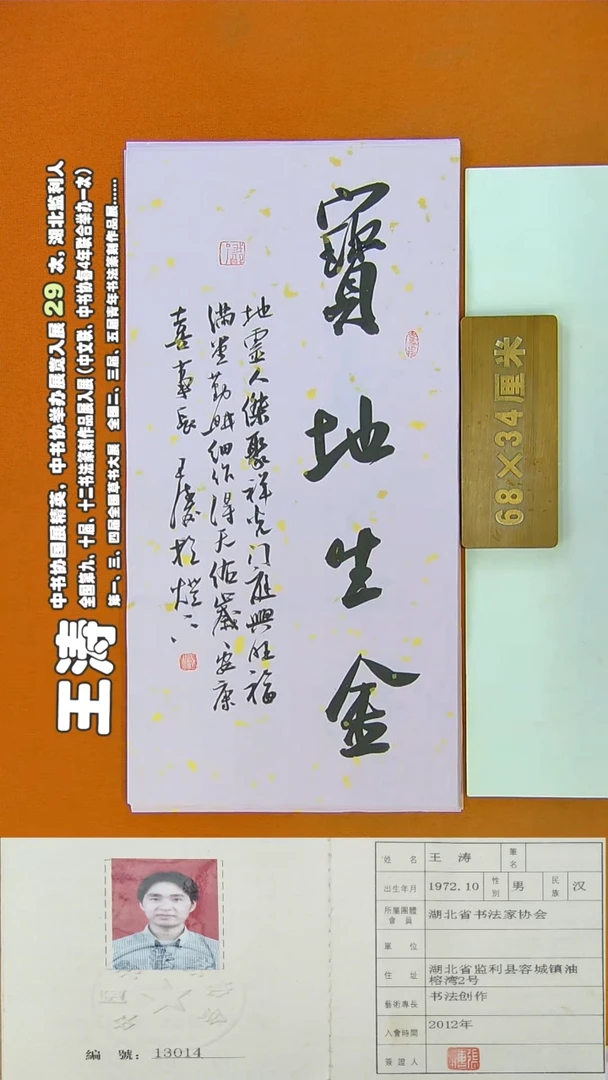 王涛
中书协国展精英，中书协举办展赛入展 29 次，湖北监利人
全国第九、十届、十二书法篆刻作品展入展（中文联、中书协每4年联合举办一次）
第一、三、四届全国草书大展 全国二、三届、五届青年书法篆刻作品展......
寶地生金
地靈人傑聚祥光门庭興旺福
满堂勤耕细作得天佑歲安康
喜事 王涛
68×34厘米
姓 名 王 涛 筆名
出生年月 1972.10 性別 男 民族 汉
所屬團體會員 湖北省书法家协会
單 位
住 址 湖北省监利县容城镇油
榕湾2号
藝術專長 书法创作
入會時間 2012年
簽 證 人
編 號：13014